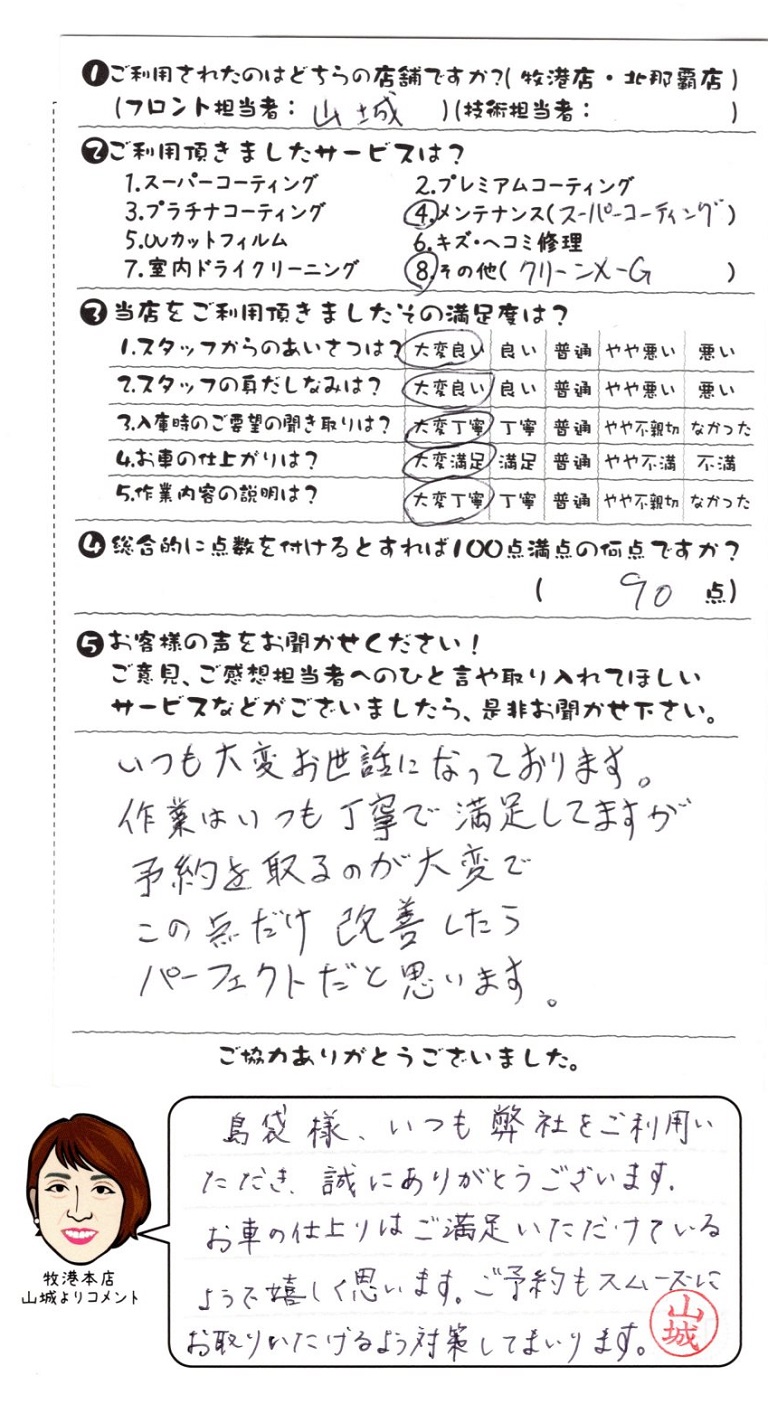 ❶ご利用されたのはどちらの店舗ですか?(牧港店・北那覇店)
(フロント担当者: 山城 )(技術担当者: )
❷ご利用頂きましたサービスは?
1.スーパーコーティング 2.プレミアムコーティング
3.プラチナコーティング 4.メンテナンス(スーパーコーティング)
5.UVカットフィルム 6.キズ・ヘコミ修理
7.室内ドライクリーニング 8.その他(クリーンメーG )
❸当店をご利用頂きましたその満足度は?
1.スタッフからのあいさつは? 大変良い 良い 普通 やや悪い 悪い
2.スタッフの身だしなみは? 大変良い 良い 普通 やや悪い 悪い
3.入庫時のご要望の聞き取りは? 大変丁寧 丁寧 普通 やや不親切 なかった
4.お車の仕上がりは? 大変満足 満足 普通 やや不満 不満
5.作業内容の説明は? 大変丁寧 丁寧 普通 やや不親切 なかった
❹総合的に点数を付けるとすれば100点満点の何点ですか?
( 90 点)
❺お客様の声をお聞かせください!
ご意見、ご感想担当者へのひと言や取り入れてほしい
サービスなどがございましたら、是非お聞かせ下さい。
いつも大変お世話になっております。
作業はいつも丁寧で満足してますが
予約を取るのが大変で
この点だけ改善したら
パーフェクトだと思います。
ご協力ありがとうございました。
島袋様、いつも弊社をご利用い
ただき、誠にありがとうございます。
お車の仕上りはご満足いただけている
ようで嬉しく思います。ご予約もスムーズに
お取りいただけるよう対策してまいります。
山城
牧港本店
山城よりコメント